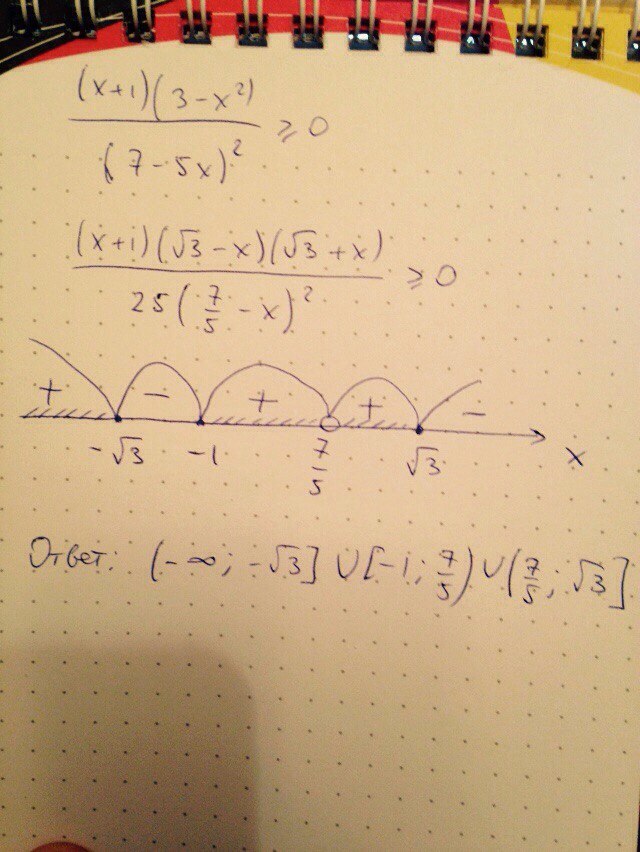 (x+1)(3-x²) / (7-5x)² ⩾ 0
(x+1)(√3-x)(√3+x) / 25(7/5-x)² ⩾ 0
+ - + + -
-√3 -1 7/5 √3 x
Ответ: (-∞; -√3] ∪ [-1; 7/5) ∪ (7/5; √3]